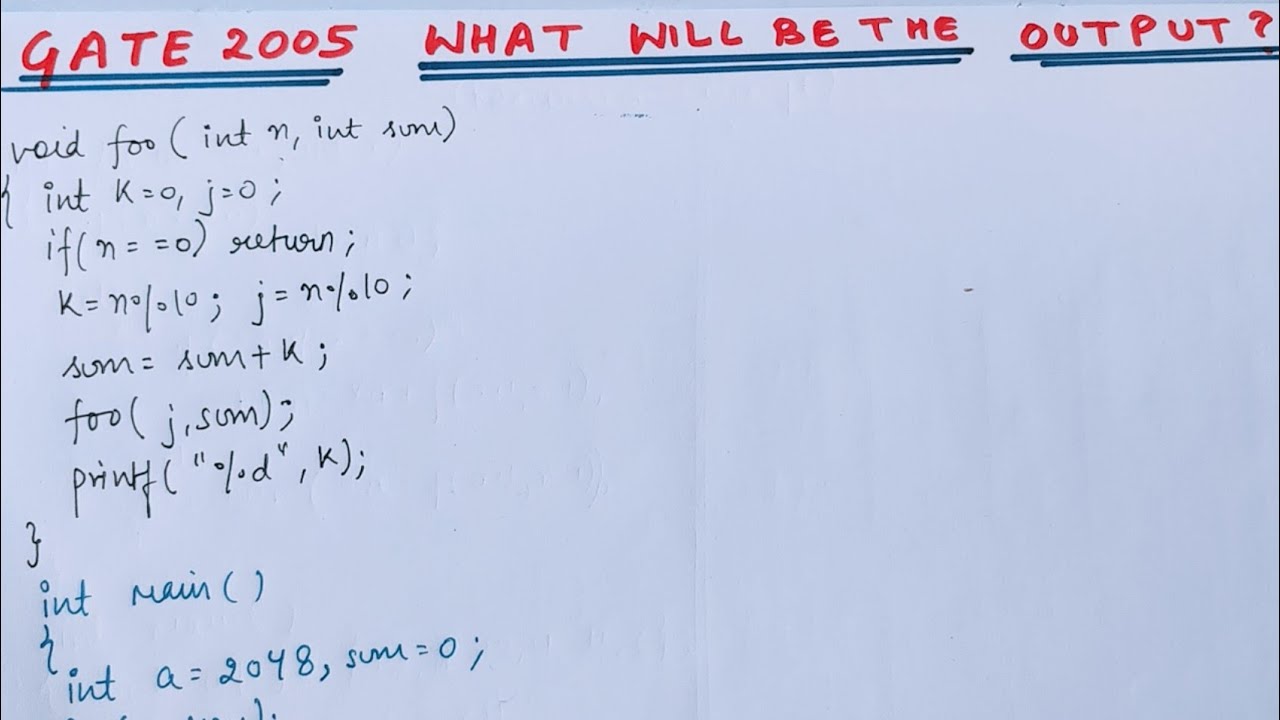 GATE 2005 WHAT WILL BE THE OUTPUT?
void foo( int n, int sum)
{ int k=0, j=0;
if(n==0) return;
k=n%10; j=n%10;
sum= sum+k;
foo( j,sum);
printf( "%d", k);
}
int main()
{
int a=2048, sum=0;